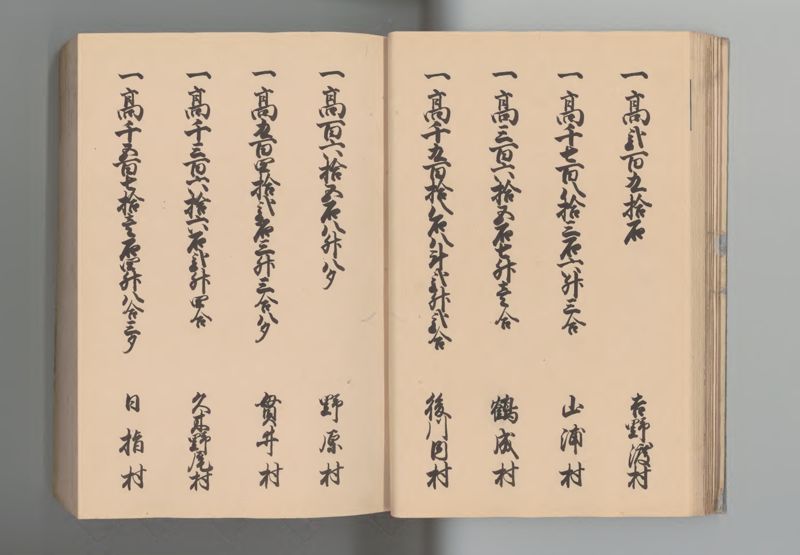 一高弐百九拾石 吉野渡村
一高千七百八拾三石六升三合 山浦村
一高三百六拾五石七升壱合 鶴成村
一高千五百拾八石八斗弐升弐合 後川内村
一高百六拾五石八升八夕 野原村
一高五百四拾弐石三升三合八夕 貫井村
一高千三百六拾六石弐升四合 久木野尾村
一高千五百七拾壱石四升八合三夕 日指村